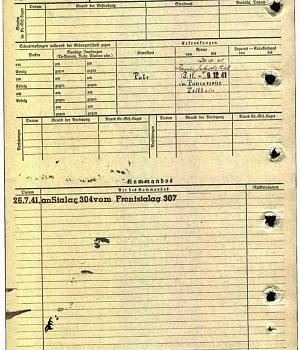 Datum
Grund der Bestrafung
Strafmaß
Verbüßt, Datum
Schutzimpfungen während der Gefangenschaft gegen
Erkrankungen
Pocken
Sonstige Impfungen
(Ty-Paratyph, Ruhr, Cholera usw.)
Krankheit
Revier
Lazarett - Krankenhaus
von bis
von bis
am
am
am
Erfolg
gegen
gegen
am
am
am
Erfolg
gegen
gegen
Ruhr
13.11.- 9.12.41
Zeithain
am
am
am
Erfolg
gegen
gegen
am
am
am
Erfolg
gegen
gegen
Datum
Grund der Versetzung
Neues Kr.-Gef.-Lager
Datum
Grund der Versetzung
Neues Kr.-Gef.-Lager
Versetzungen
Kommandos
Datum
Art des Kommandos
Rückkehrdatum
26.7.41 an Stalag 304 vom Frontstalag 307